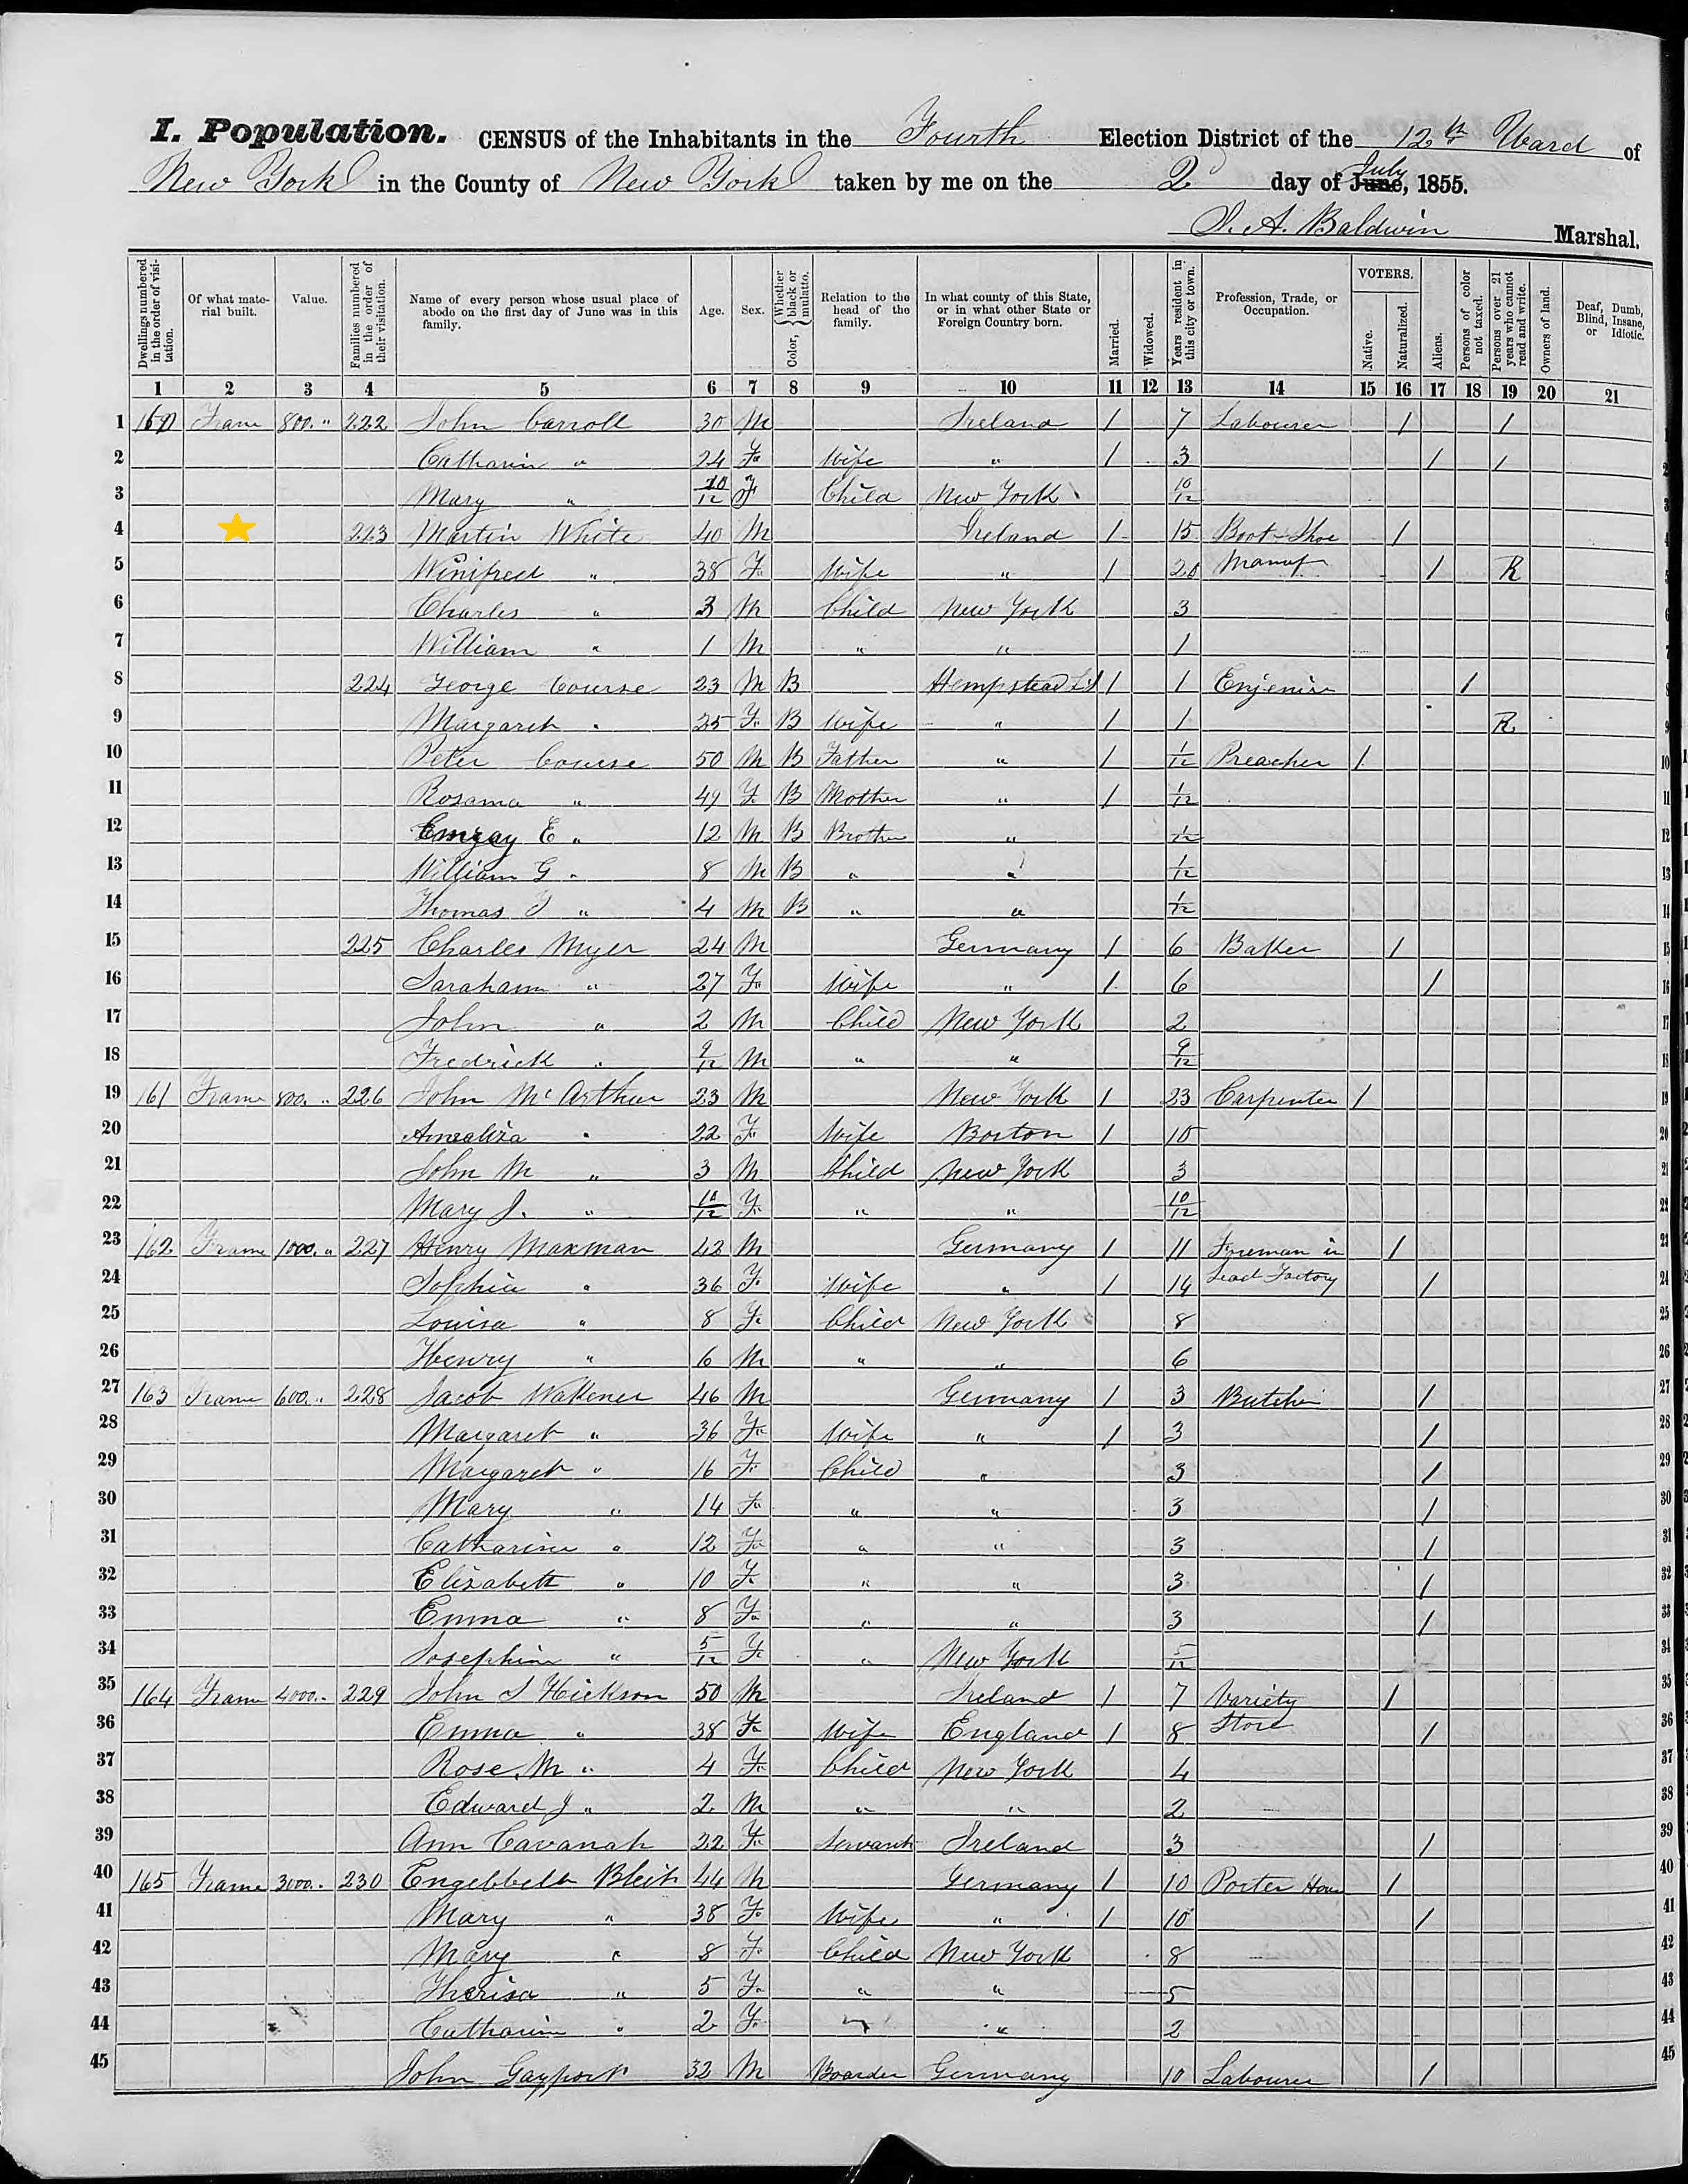 I. Population. CENSUS of the Inhabitants in the Fourth Election District of the 12th Ward of
New York in the County of New York taken by me on the 2d day of June, July 1855.
A. Baldwin Marshal.
Dwellings numbered in the order of visitation. Of what material built. Value. Families numbered in the order of their visitation. Name of every person whose usual place of abode on the first day of June was in this family. Age. Sex. Color, { Whether black or mulatto. Relation to the head of the family. In what county of this State, or in what other State or Foreign Country born. Married. Widowed. Years resident in this city or town. Profession, Trade, or Occupation. VOTERS. Native. Naturalized. Aliens. Persons of color not taxed. Persons over 21 years who cannot read and write. Owners of land. Deaf, Dumb, Blind, Insane, or Idiotic.
1 2 3 4 5 6 7 8 9 10 11 12 13 14 15 16 17 18 19 20 21
1 160 Frame 800 " 222 John Carroll 30 M Ireland 1 7 Labourer 1 1
2 Catharin " 24 F Wife " 1 3 1 1
3 Mary " 10/12 F Child New York 10/12
4 223 Martin White 40 M Ireland 1 15 Boot & Shoe 1
5 Winifred " 38 F Wife " 1 20 Manuf 1 R
6 Charles " 3 M Child New York 3
7 William " 1 M " " 1
8 224 George Course 23 M B Hempstead L I 1 1 Enjenier 1
9 Margaret " 25 F B Wife " 1 1 R
10 Peter Course 50 M B Father " 1 1/12 Preacher 1
11 Rosanna " 49 F B Mother " 1 1/12
12 E " 12 M B Brother " 1/12
13 William G " 8 M B " " 1/12
14 Thomas " 4 M B " " 1/12
15 225 Charles Myer 24 M Germany 1 6 Baker 1
16 Sarahann " 27 F Wife " 1 6 1
17 John " 2 M Child New York 2
18 Fredrick " 9/12 M " " 9/12
19 161 Frame 800 " 226 John Mc Arthur 23 M New York 1 23 Carpenter 1
20 Amealiza " 22 F Wife Boston 1 10
21 John M " 3 M Child New York 3
22 Mary J. " 10/12 F " " 10/12
23 162 Frame 1000 " 227 Henry Maxman 42 M Germany 1 11 Foreman in 1
24 Sophia " 36 F Wife " 1 14 Lead Factory 1
25 Louisa " 8 F Child New York 8
26 Henry " 6 M " " 6
27 163 Frame 600 " 228 Jacob Wakener 46 M Germany 1 3 Butcher 1
28 Margaret " 36 F Wife " 1 3 1
29 Margaret " 16 F Child " 3 1
30 Mary " 14 F " " 3 1
31 Catharine " 12 F " " 3 1
32 Elizabeth " 10 F " " 3 1
33 Emma " 8 F " " 3 1
34 Josephine " 5/12 F " New York 5/12
35 164 Frame 4000 " 229 John S Hickson 50 M Ireland 1 7 Variety 1
36 Emma " 38 F Wife England 1 8 Store 1
37 Rose M " 4 F Child New York 4
38 Edward J " 2 M " " 2
39 Ann Cavanah 22 F Servant Ireland 3 1
40 165 Frame 3000 " 230 Engebbelt 44 M Germany 1 10 Porter House 1
41 Mary " 38 F Wife " 1 10 1
42 Mary " 8 F Child New York 8
43 Therisa " 5 F " " 5
44 Catharin " 2 F " " 2
45 John Gayport 32 M Boarder Germany 10 Labourer 1